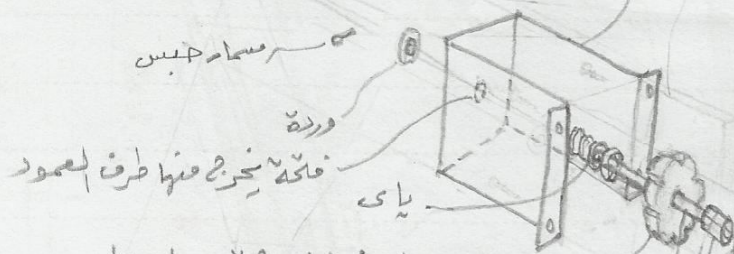 مسمار حبس
وردة
فتحة يخرج منها طرف العمود
ياى